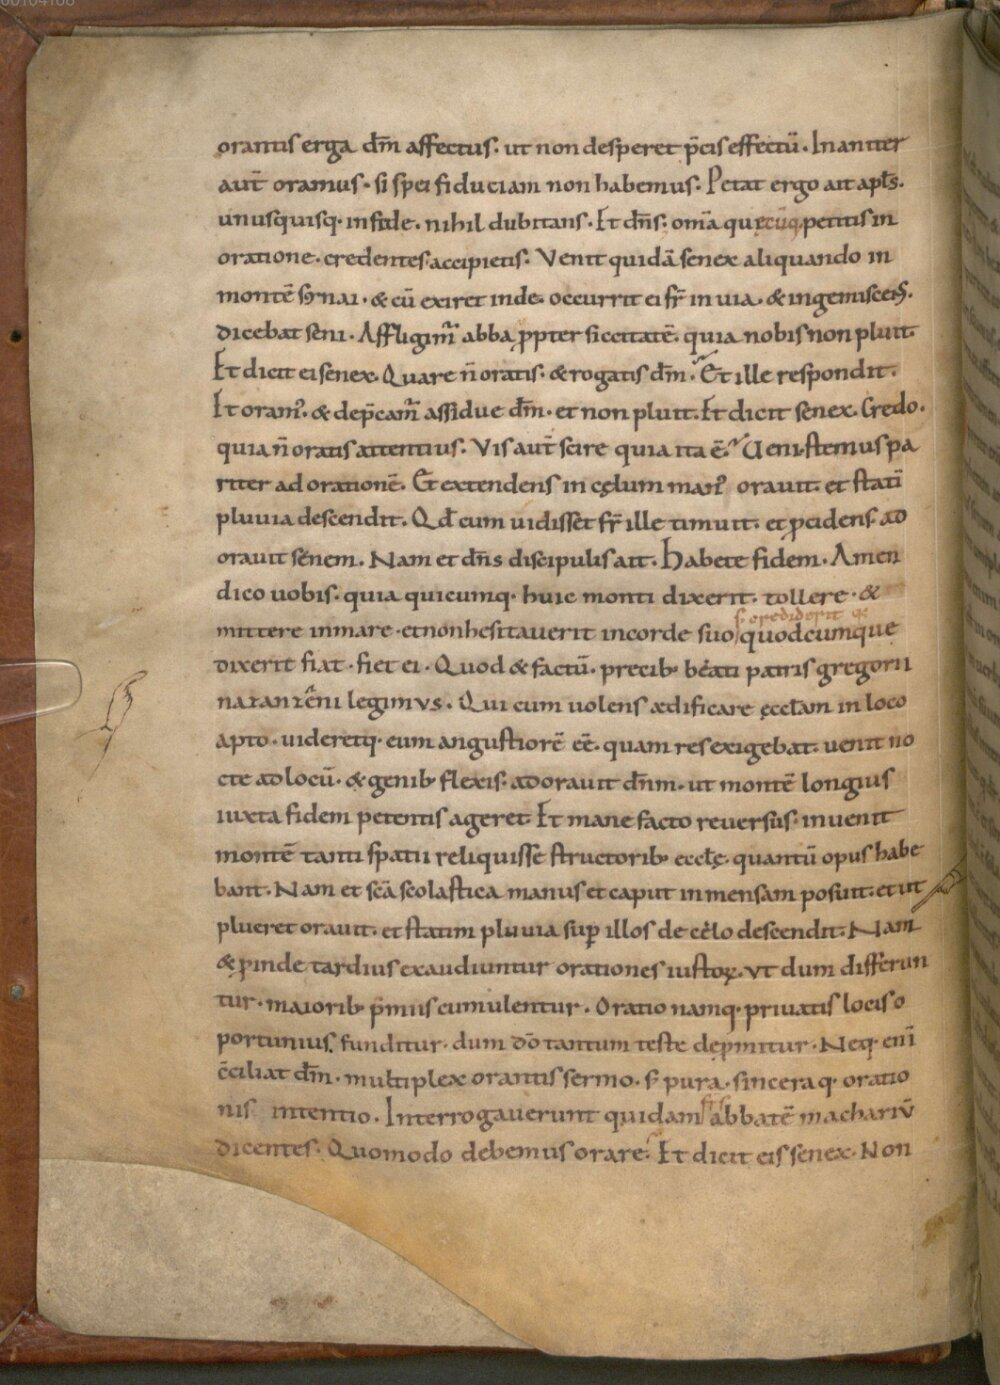 00104108
orantis erga dm̄ affectus. ut non desperet p̄cis effectū. Inaniter
aut̄ oramus. si spei fiduciam non habemus. Petat ergo ait apl̄s.
unusquisq; in fide. nihil dubitans. Et dn̄s. om̄a quęcūq; petitis in
oratione. credentes accipietis. Venit quidā senex aliquando in
montē synai. & cū exiret inde. occurrit ei fr̄ in uia. & ingemiscens.
dicebat seni. Affligim̄ abba ꝓpter siccitatē. quia nobis non pluit.
Et dicit ei senex. Quare n̄ oratis. & rogatis dm̄. Et ille respondit.
Et oram᾿. & dep̄cam̄ assidue dm̄. et non pluit. Et dicit senex. Credo.
quia n̄ oratis attentius. Vis aut̄ scire quia ita ē. Ueni. stemus pa
riter ad orationē. Et extendens in cęlum man᾿ orauit. et stati
pluuia descendit. Qd̄ cum uidisset fr̄ ille timuit. et ꝓcidens ad
orauit senem. Nam et dn̄s discipulis ait. Habete fidem. Amen
dico uobis. quia quicumq; huic monti dixerit. tollere. &
s. crediderit q̄
mittere in mare. et non hesitauerit in corde suo quodcumque
dixerit fiat. fiet ei. Quod & factū. precib; beati patris gregorii
nazanzēni legimus. Qui cum uolens ædificare ęccl̄am in loco
apto. uideretq; eum angustiorē eē. quam res exigebat. uenit no
cte ad locū. & genib; flexis. adorauit dn̄m. ut montē longius
iuxta fidem petentis ageret. Et mane facto reuersus. inuenit
montē tanti spatii reliquisse structorib; eccl̄ę. quantū opus habe
bant. Nam et sc̄a scolastica manus et caput in mensam posuit. et ut
plueret orauit. et statim pluuia suꝑ illos de cęlo descendit. Nam
& ꝓinde tardius exaudiuntur orationes iustoꝝ. ut dum differun
tur. maiorib; p̄miis cumulentur. Oratio namq; priuatis locis o
portunius funditur. dum dō tantum teste depromitur. Neq; eni
c̄ciliat dm̄. multiplex orantis sermo. s; pura. sinceraq; oratio
frs
nis intentio. Interrogauerunt quidam abbatē machariū
dicentes. Quomodo debemus orare. Et dicit eis senex. Non